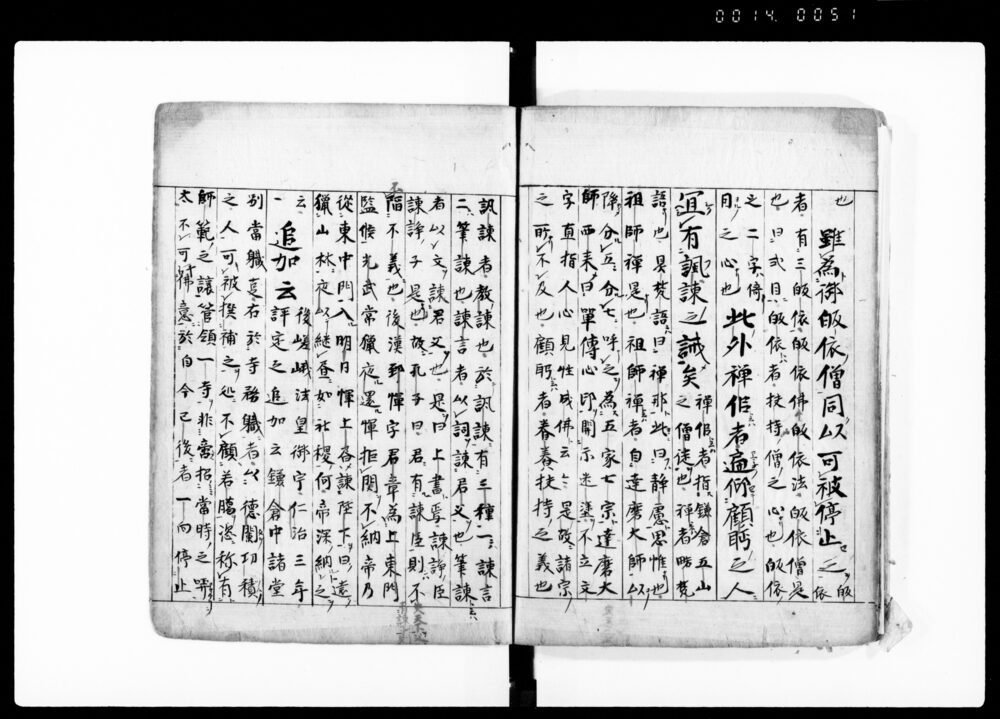 0014.0051
也
雖為御皈依僧同以可被停止之 皈依
者有三皈依皈依佛皈依法皈依僧是
也曰弐且皈依者扶持僧之心也皈依
之二字倚
目之心也 此外禪侶者遍仰顧眄之人
宜有諷諫之誡矣 禪侶者指鎌倉五山之僧徒也禪者略梵
語也具梵語曰禪那此曰静慮思惟也
祖師禪是也祖師禪者自達磨大師以
降分五分七呼之為五家七宗達磨大
師西来曰單傳心印開示迷塗不立文
字直指人心見性成佛云々是故諸宗
之所不及也顧眄者眷養扶持之義也
諷諫者教諫也於諷諫有三種一諫言
二筆諫也諫言者以詞諫君父也筆諫
者以文諫君父也是曰上書焉諫諍臣
諫諍子是也故孔子曰君有諫臣則不
陷不義也後漢郅惲字君章為上東門
監候光武常獵夜還惲拒関不納帝乃
從東中門入明日惲上書諫陛下曰遠
獵山林夜以継昼如社稷何帝深納之
云
一 追加云 後嵯峨法皇御宇仁治三年評定之追加云鎌倉中諸堂
別當職夏右於寺務職者以德闌功積
之人可被撰補之処不顧若臈恣称有
師範之讓管領一寺非啻招當時之哢
太不可佛意於自今已後者一向停止